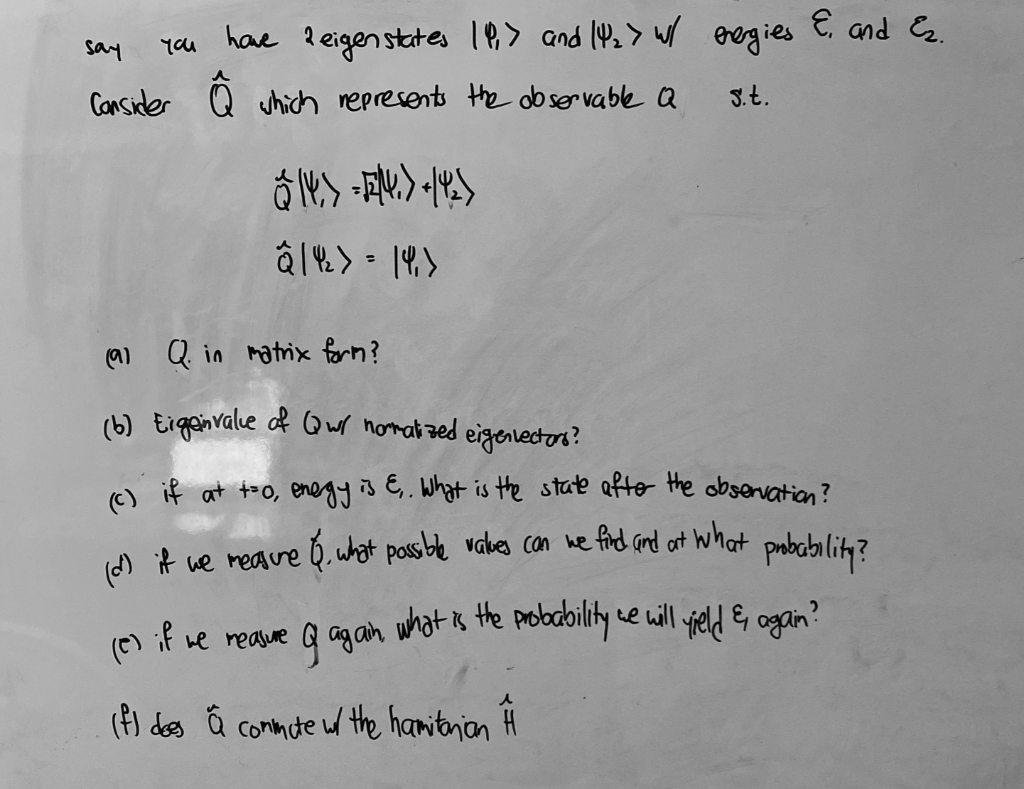 say you have 2 eigenstates |Ψ₁> and |Ψ₂> w/ energies ℰ₁ and ℰ₂.
Consider Q̂ which represents the observable Q s.t.
Q̂|Ψ₁> = √2|Ψ₁> + |Ψ₂>
Q̂|Ψ₂> = |Ψ₁>
(a) Q in matrix form?
(b) Eigenvalue of Q w/ normalized eigenvectors?
(c) if at t=0, energy is ℰ₁. What is the state after the observation?
(d) if we measure Q̂, what possible values can we find and at what probability?
(e) if we measure Q again, what is the probability we will yield ℰ₁ again?
(f) does Q̂ commute w/ the hamitonian Ĥ